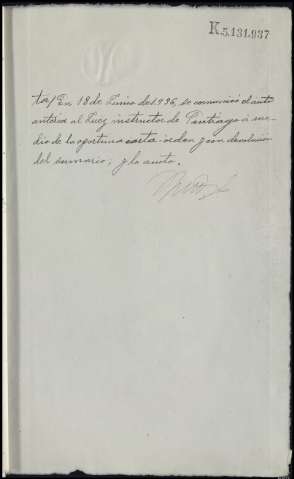 K5.131.937
ta/ En 18 de Junio de 1.936, se comunicó el auto
anterior al Juez instructor de Santiago á me-
dio de la oportuna carta-orden y con devolución
del sumario; y lo anoto.